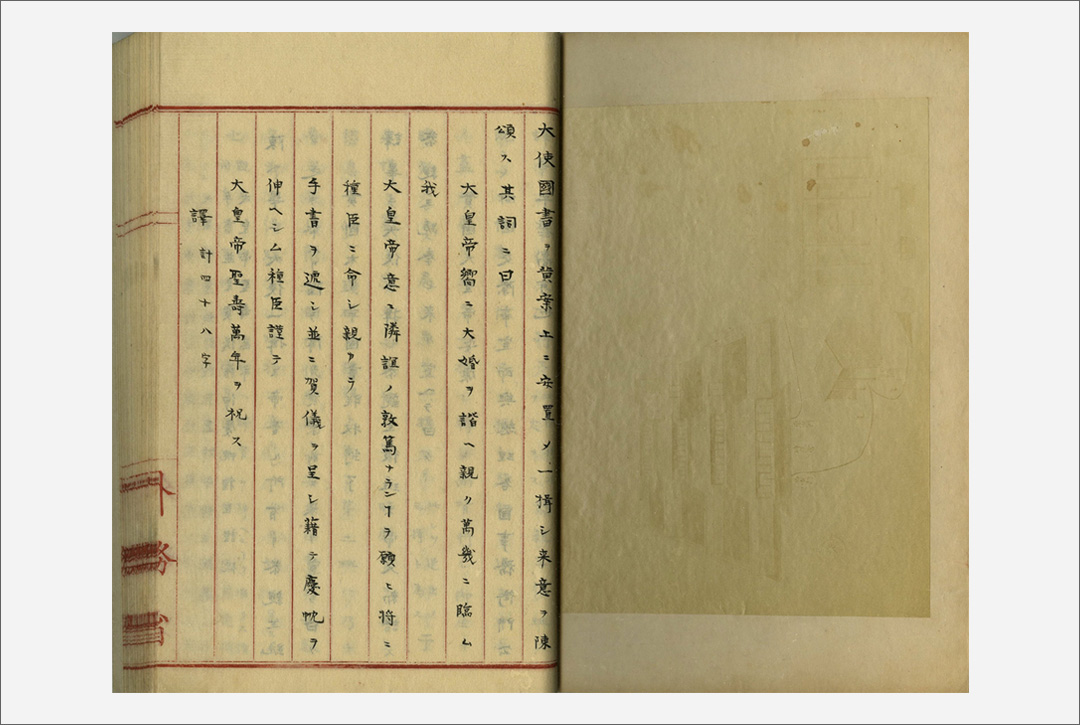 大使國書ヲ黄案上ニ安置メ一揖シ来意ヲ陳
頌ス其詞ニ曰
大皇帝嚮ニ大婚ヲ諧ヘ親ク萬幾ニ臨ム
我
大皇帝意ニ隣誼ノ敦篤ナランヿヲ願ヒ将ニ
種臣ニ命シ親カラ
手書ヲ遞シ並ニ賀儀ヲ呈シ藉テ慶忱ヲ
伸ヘシム種臣謹テ
大皇帝聖壽萬年ヲ祝ス
譯計四十八字
外務省